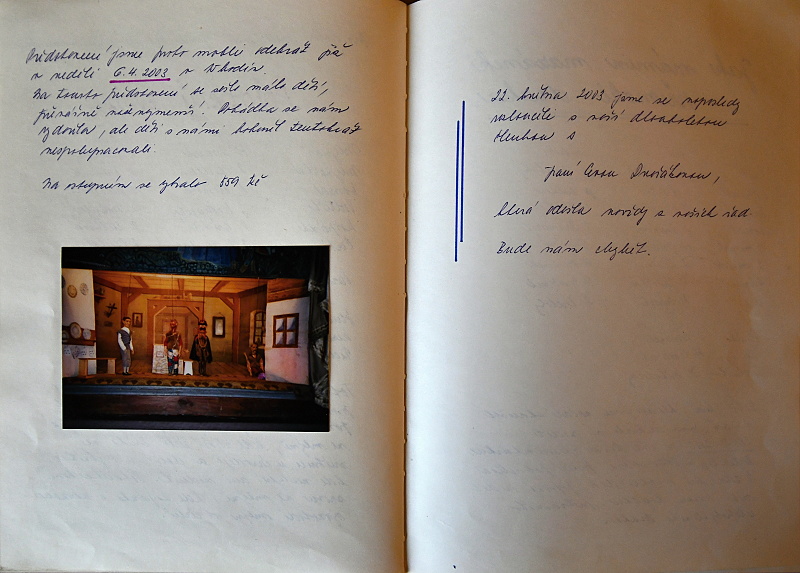 Představení jsme proto mohli odehrát až
v neděli 6.4.2003 v hodin.
Na tomto představení se sešlo málo dětí,
převážně nejmenší. Pohádka se nám
vydařila, ale děti s námi bohužel tentokrát
nespolupracovali.
Na vstupném se vybralo 559 Kč
22. května 2003 jsme se naposledy
rozloučili s naší dlouholetou
členkou s
paní Dvořákovou,
která odešla navždy z našich řad.
Bude nám chybět.